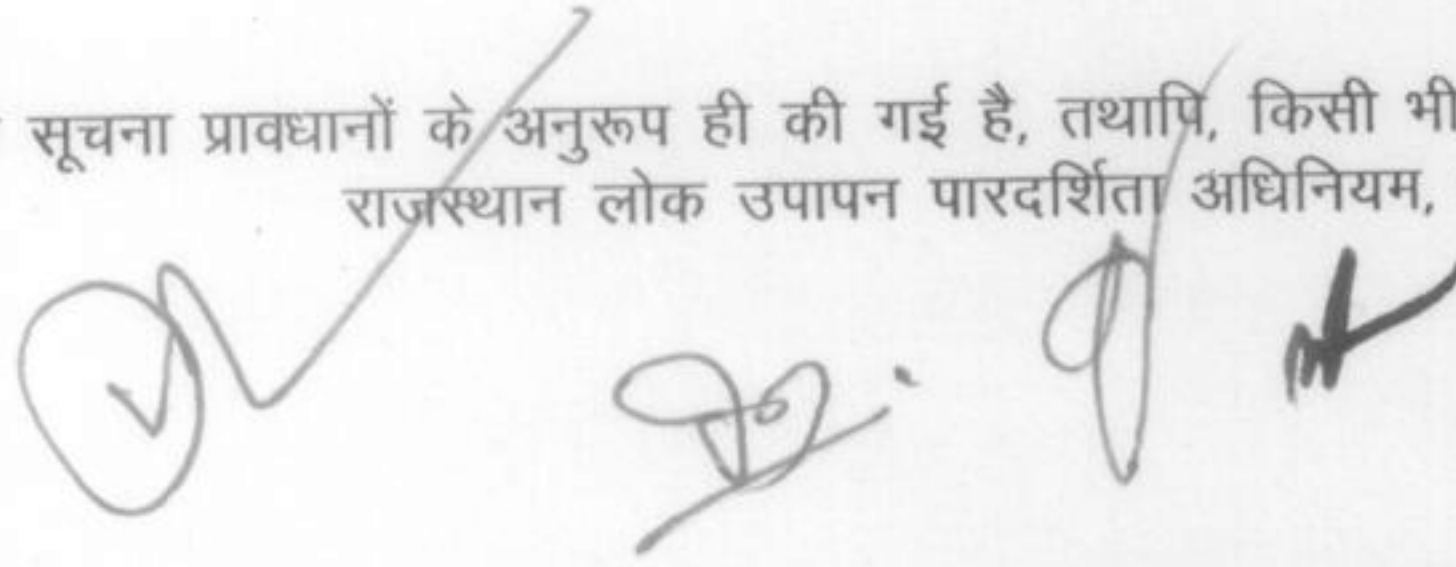 सूचना प्रावधानों के अनुरूप ही की गई है, तथापि, किसी भी
राजस्थान लोक उपापन पारदर्शिता अधिनियम,